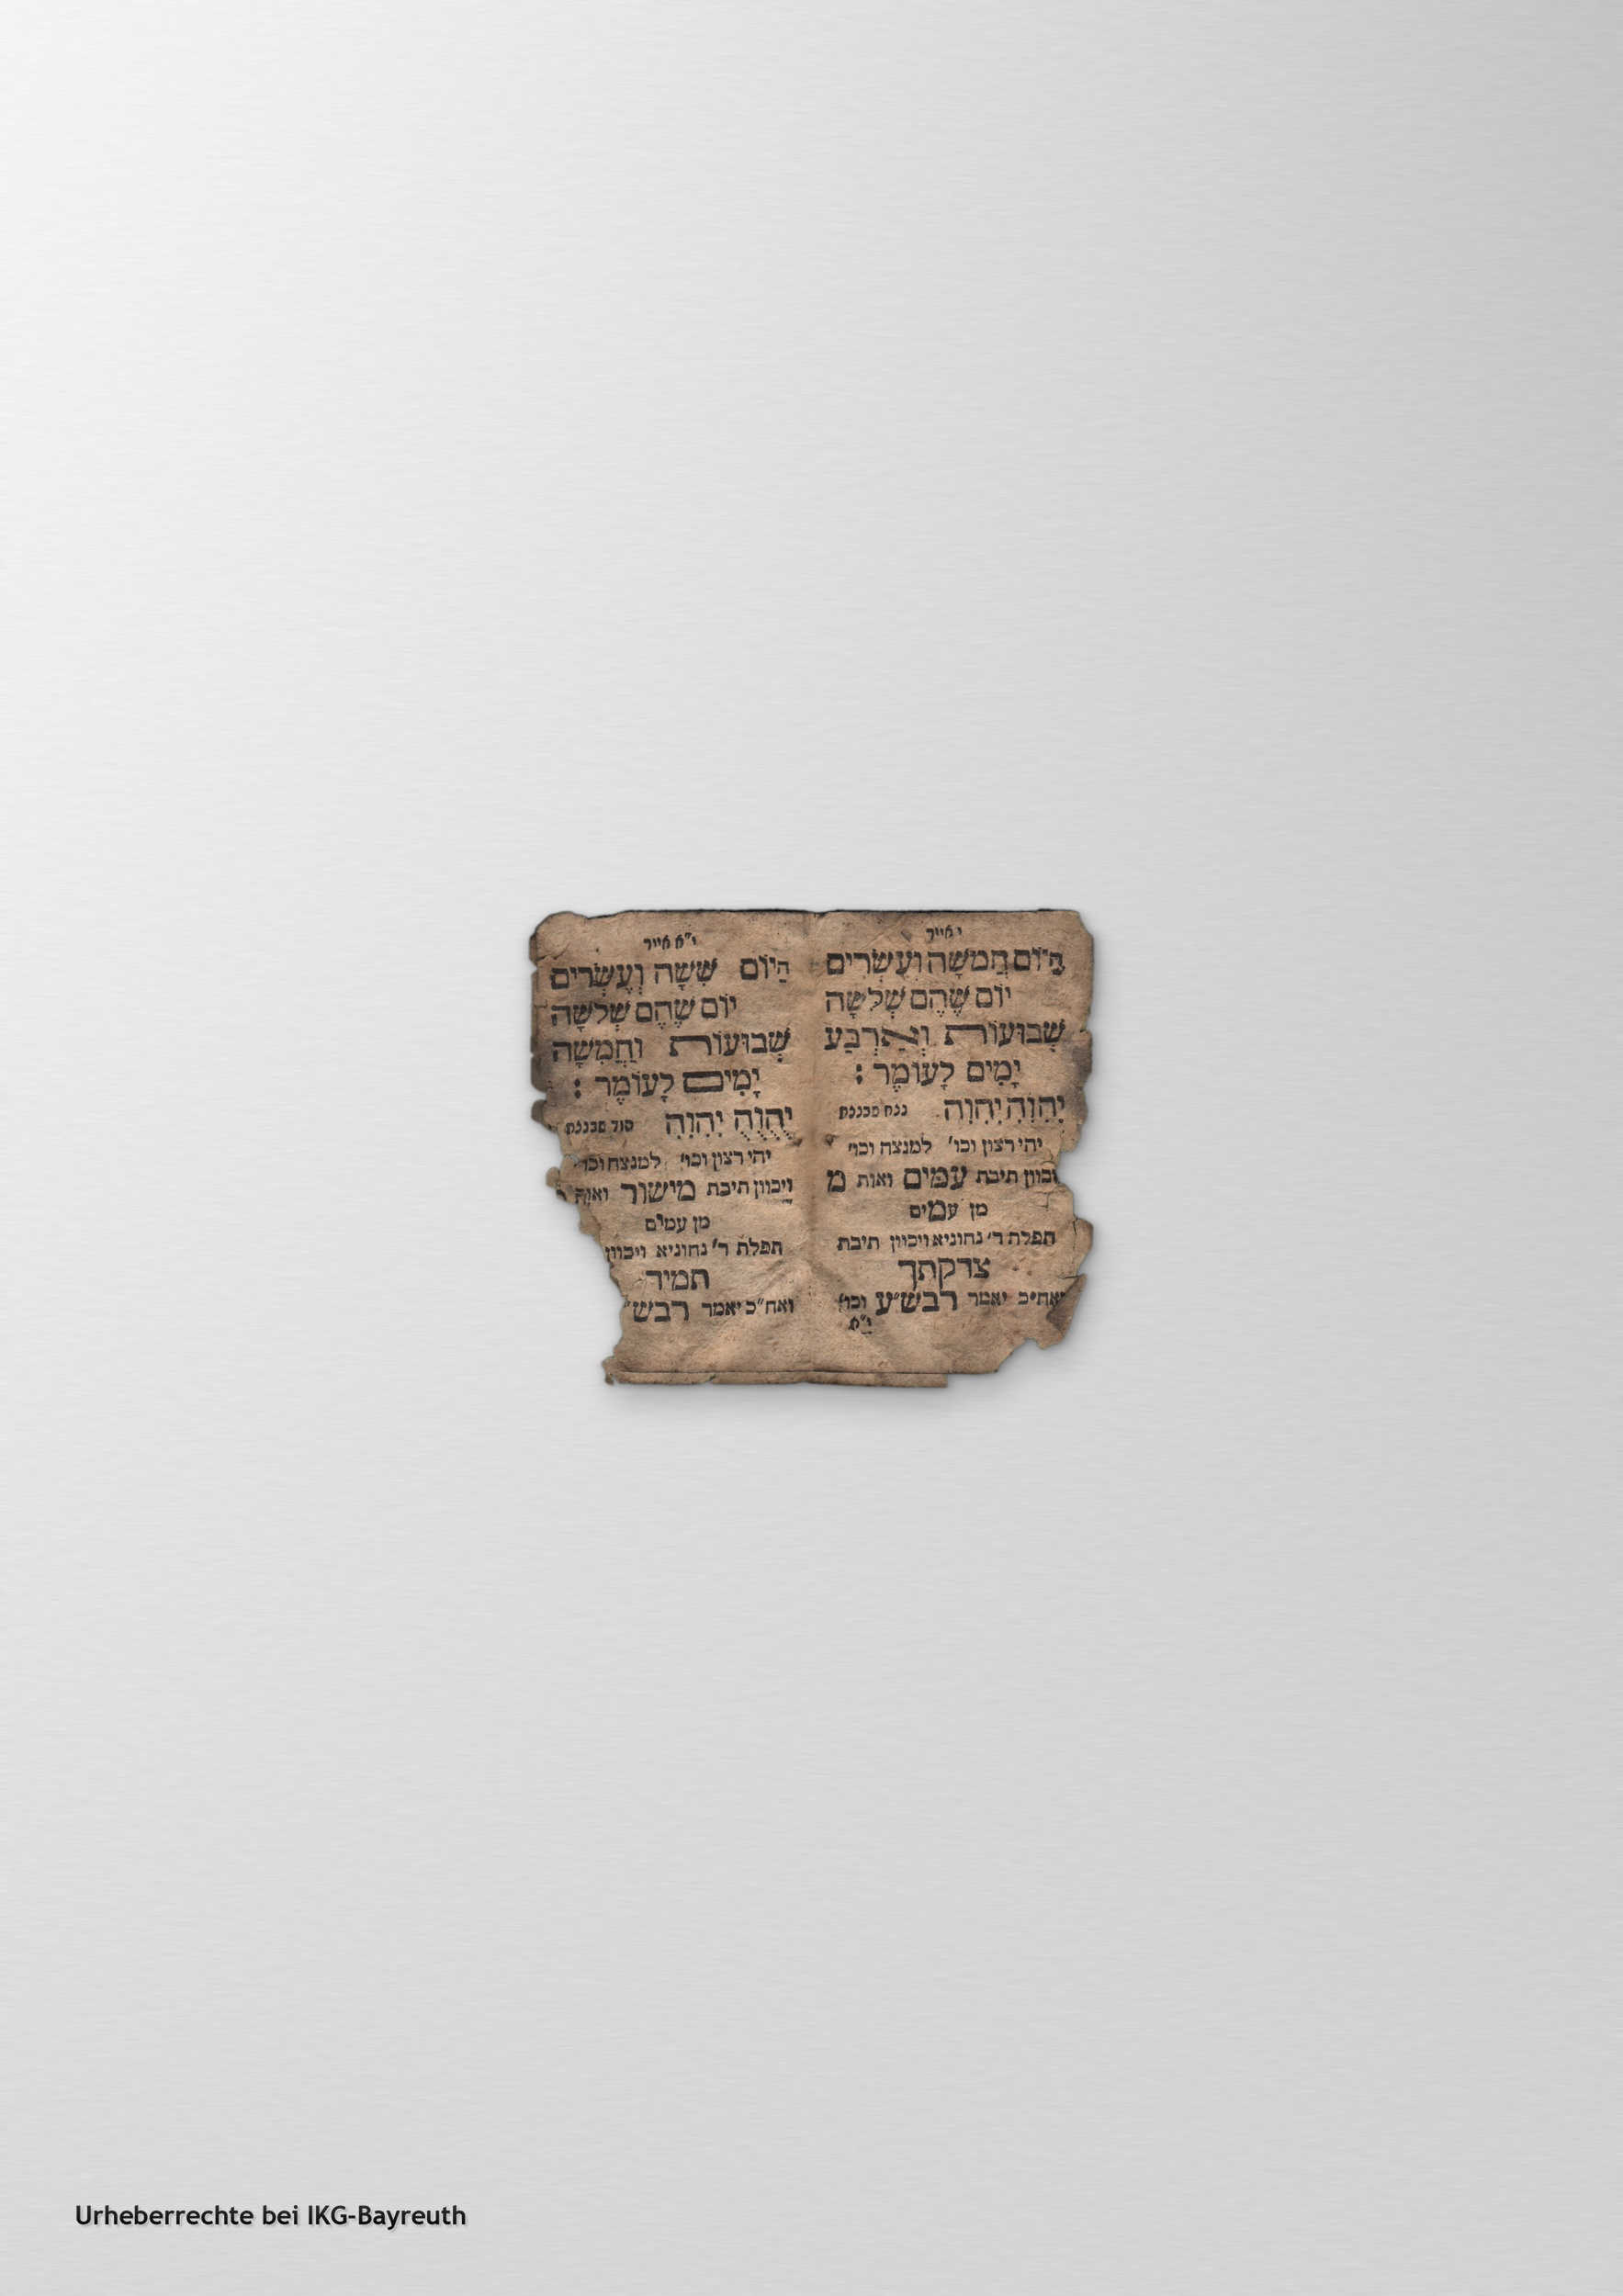 י אייר
הַיּוֹם חֲמִשָּׁה וְעֶשְׂרִים
יוֹם שֶׁהֵם שְׁלֹשָׁה
שָׁבוּעוֹת וְאַרְבַּע
יָמִים לָעוֹמֶר :
יהוה יהוה נצח שבנצח
יהי רצון וכו' למנצח וכו'
ויכוון תיבת עמים ואות מ
מן עמים
תפלת ר' נחוניא ויכוון תיבת
צדקתך
ואח"כ יאמר רבש"ע וכו'
י"א
י"א אייר
הַיּוֹם שִׁשָּׁה וְעֶשְׂרִים
יוֹם שֶׁהֵם שְׁלֹשָׁה
שָׁבוּעוֹת וַחֲמִשָּׁה
יָמִים לָעוֹמֶר :
יהוה יהוה הוד שבנצח
יהי רצון וכו' למנצח וכו'
ויכוון תיבת מישור ואות
מן עמים
תפלת ר' נחוניא ויכוון
תמיד
ואח"כ יאמר רבש"
Urheberrechte bei IKG-Bayreuth